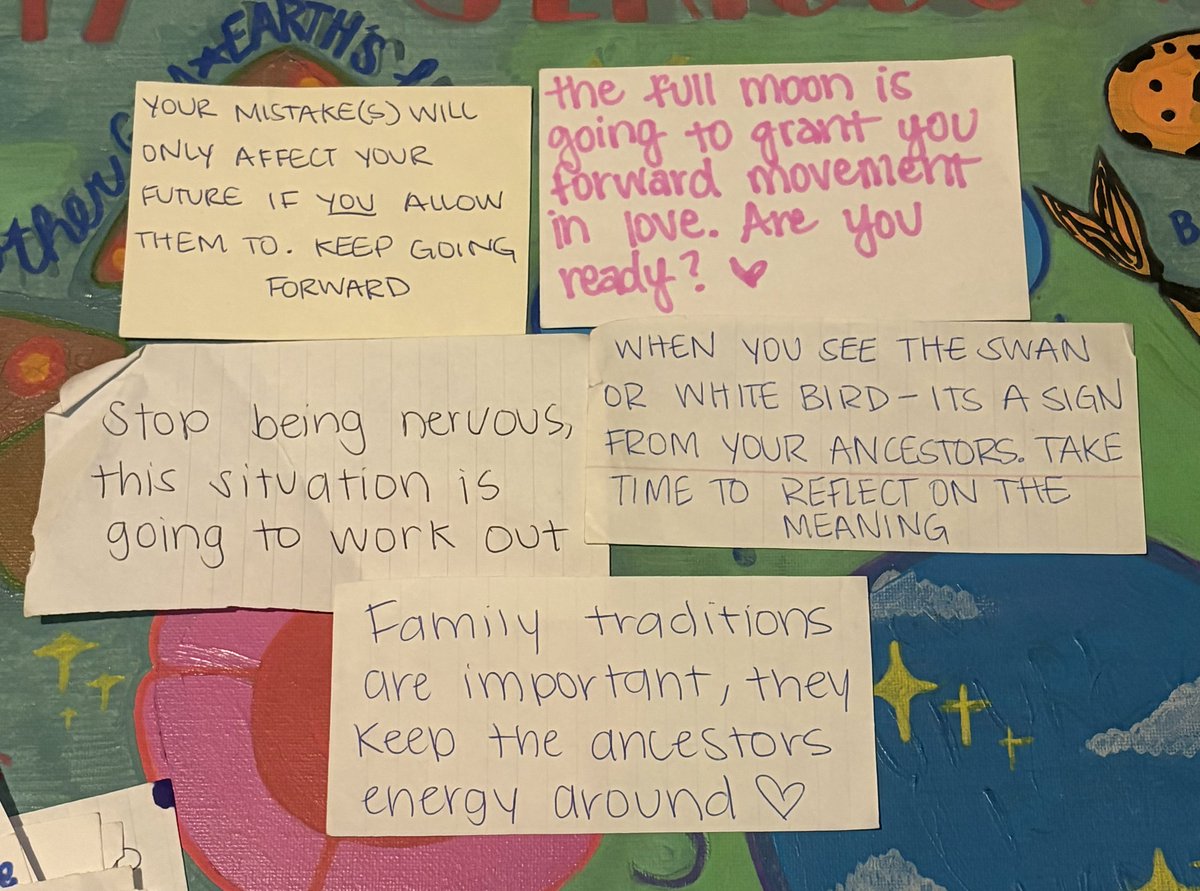 EARTH'S
YOUR MISTAKE(S) WILL
ONLY AFFECT YOUR
FUTURE IF YOU ALLOW
THEM TO. KEEP GOING
FORWARD
the full moon is
going to grant you
forward movement
in love. Are you
ready?
Stop being nervous,
this situation is
going to work out
WHEN YOU SEE THE SWAN
OR WHITE BIRD - ITS A SIGN
FROM YOUR ANCESTORS. TAKE
TIME TO REFLECT ON THE
MEANING
Family traditions
are important, they
keep the ancestors
energy around ♡